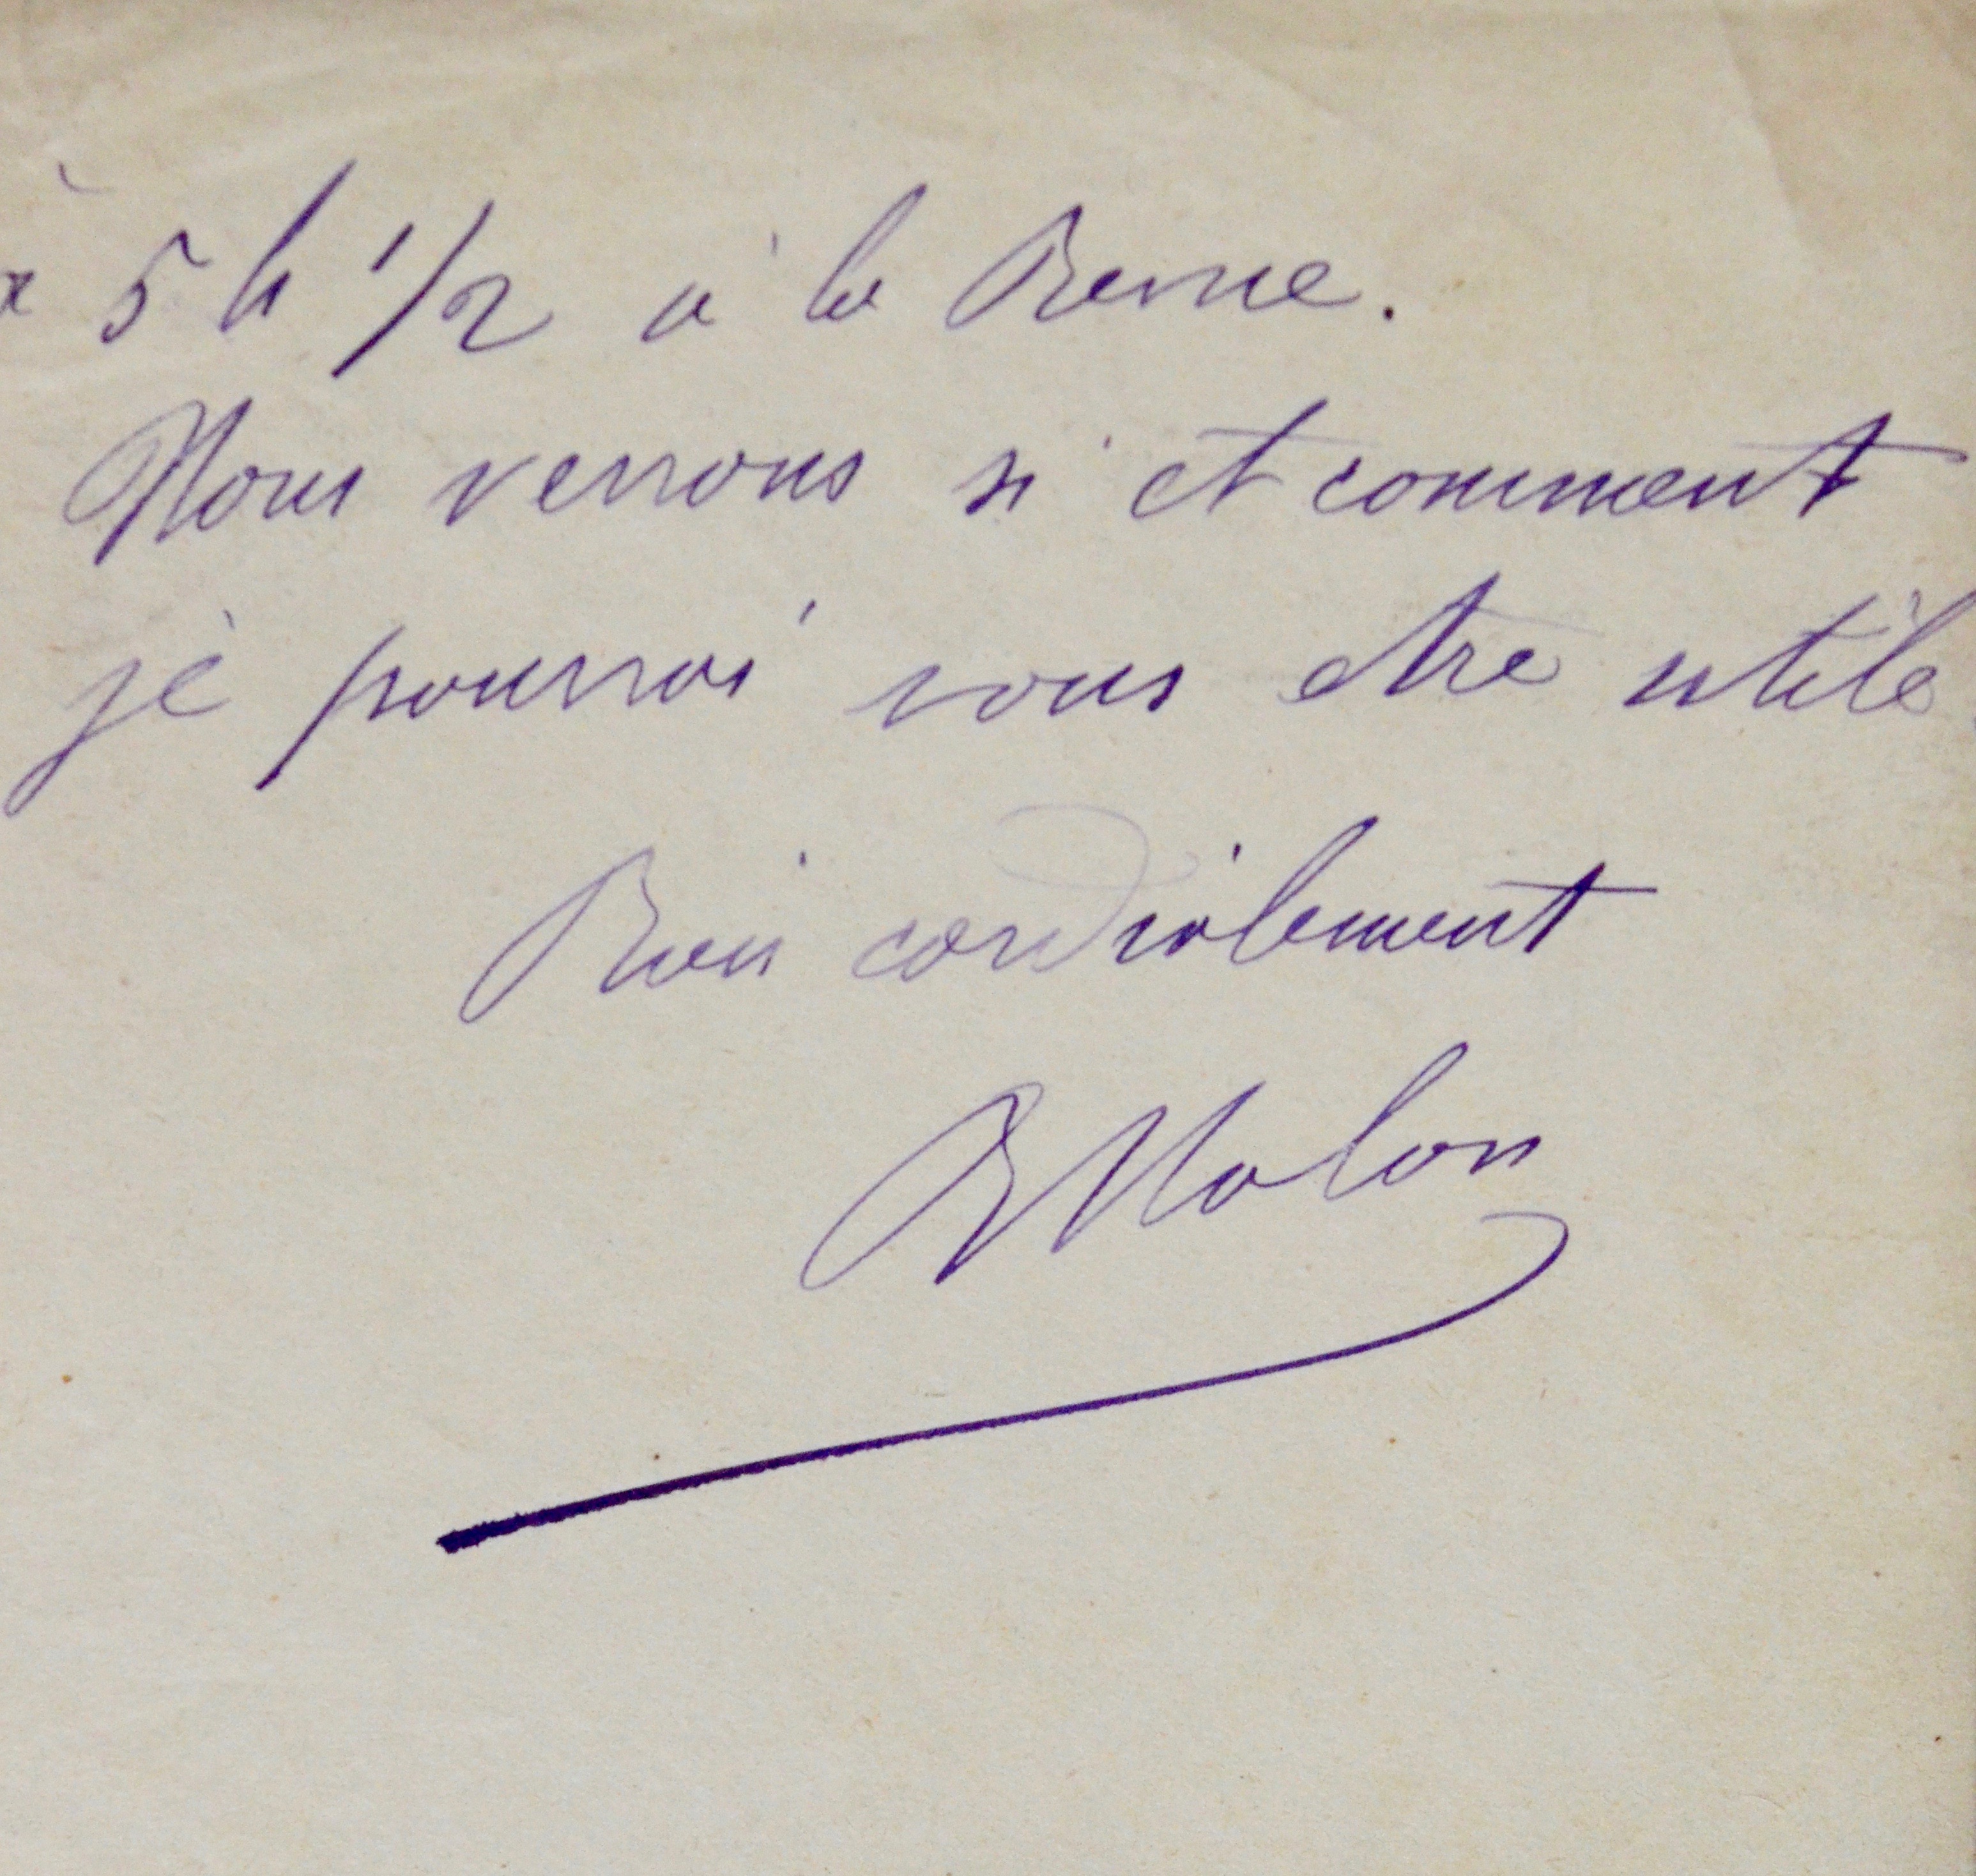 à 5 h 1/2 à la Revue.
Nous verrons si et comment
je pourrai vous etre utile.
Bien cordialement
B Malon